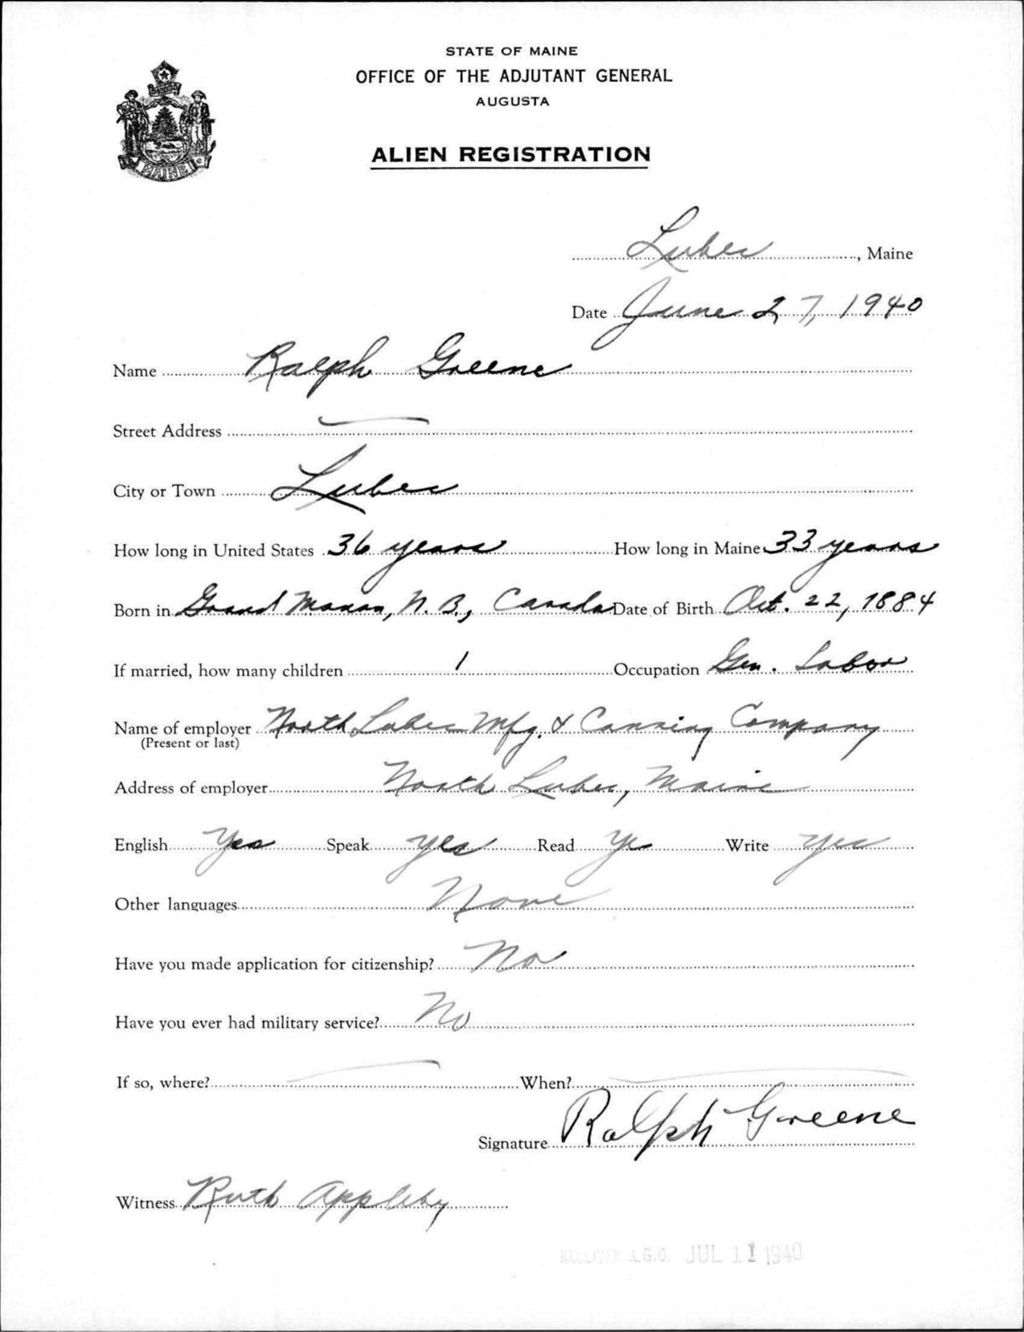 STATE OF MAINE
OFFICE OF THE ADJUTANT GENERAL
AUGUSTA
ALIEN REGISTRATION
MAINE
Lubec, Maine
Date June 27, 1940
Name Ralph Greene
Street Address
City or Town Lubec
How long in United States 36 years How long in Maine 33 years
Born in Grand Manan, N. B., Canada Date of Birth Oct. 22, 1884
If married, how many children 1 Occupation Gen. Labor
Name of employer North Lubec Mfg. & Canning Company
(Present or last)
Address of employer North Lubec, Maine
English Yes Speak yes Read Ye Write yes
Other languages None
Have you made application for citizenship? No
Have you ever had military service? No
If so, where? When?
Signature Ralph Greene
Witness Ruth Appleby
A.G.O. JUL 11 1940